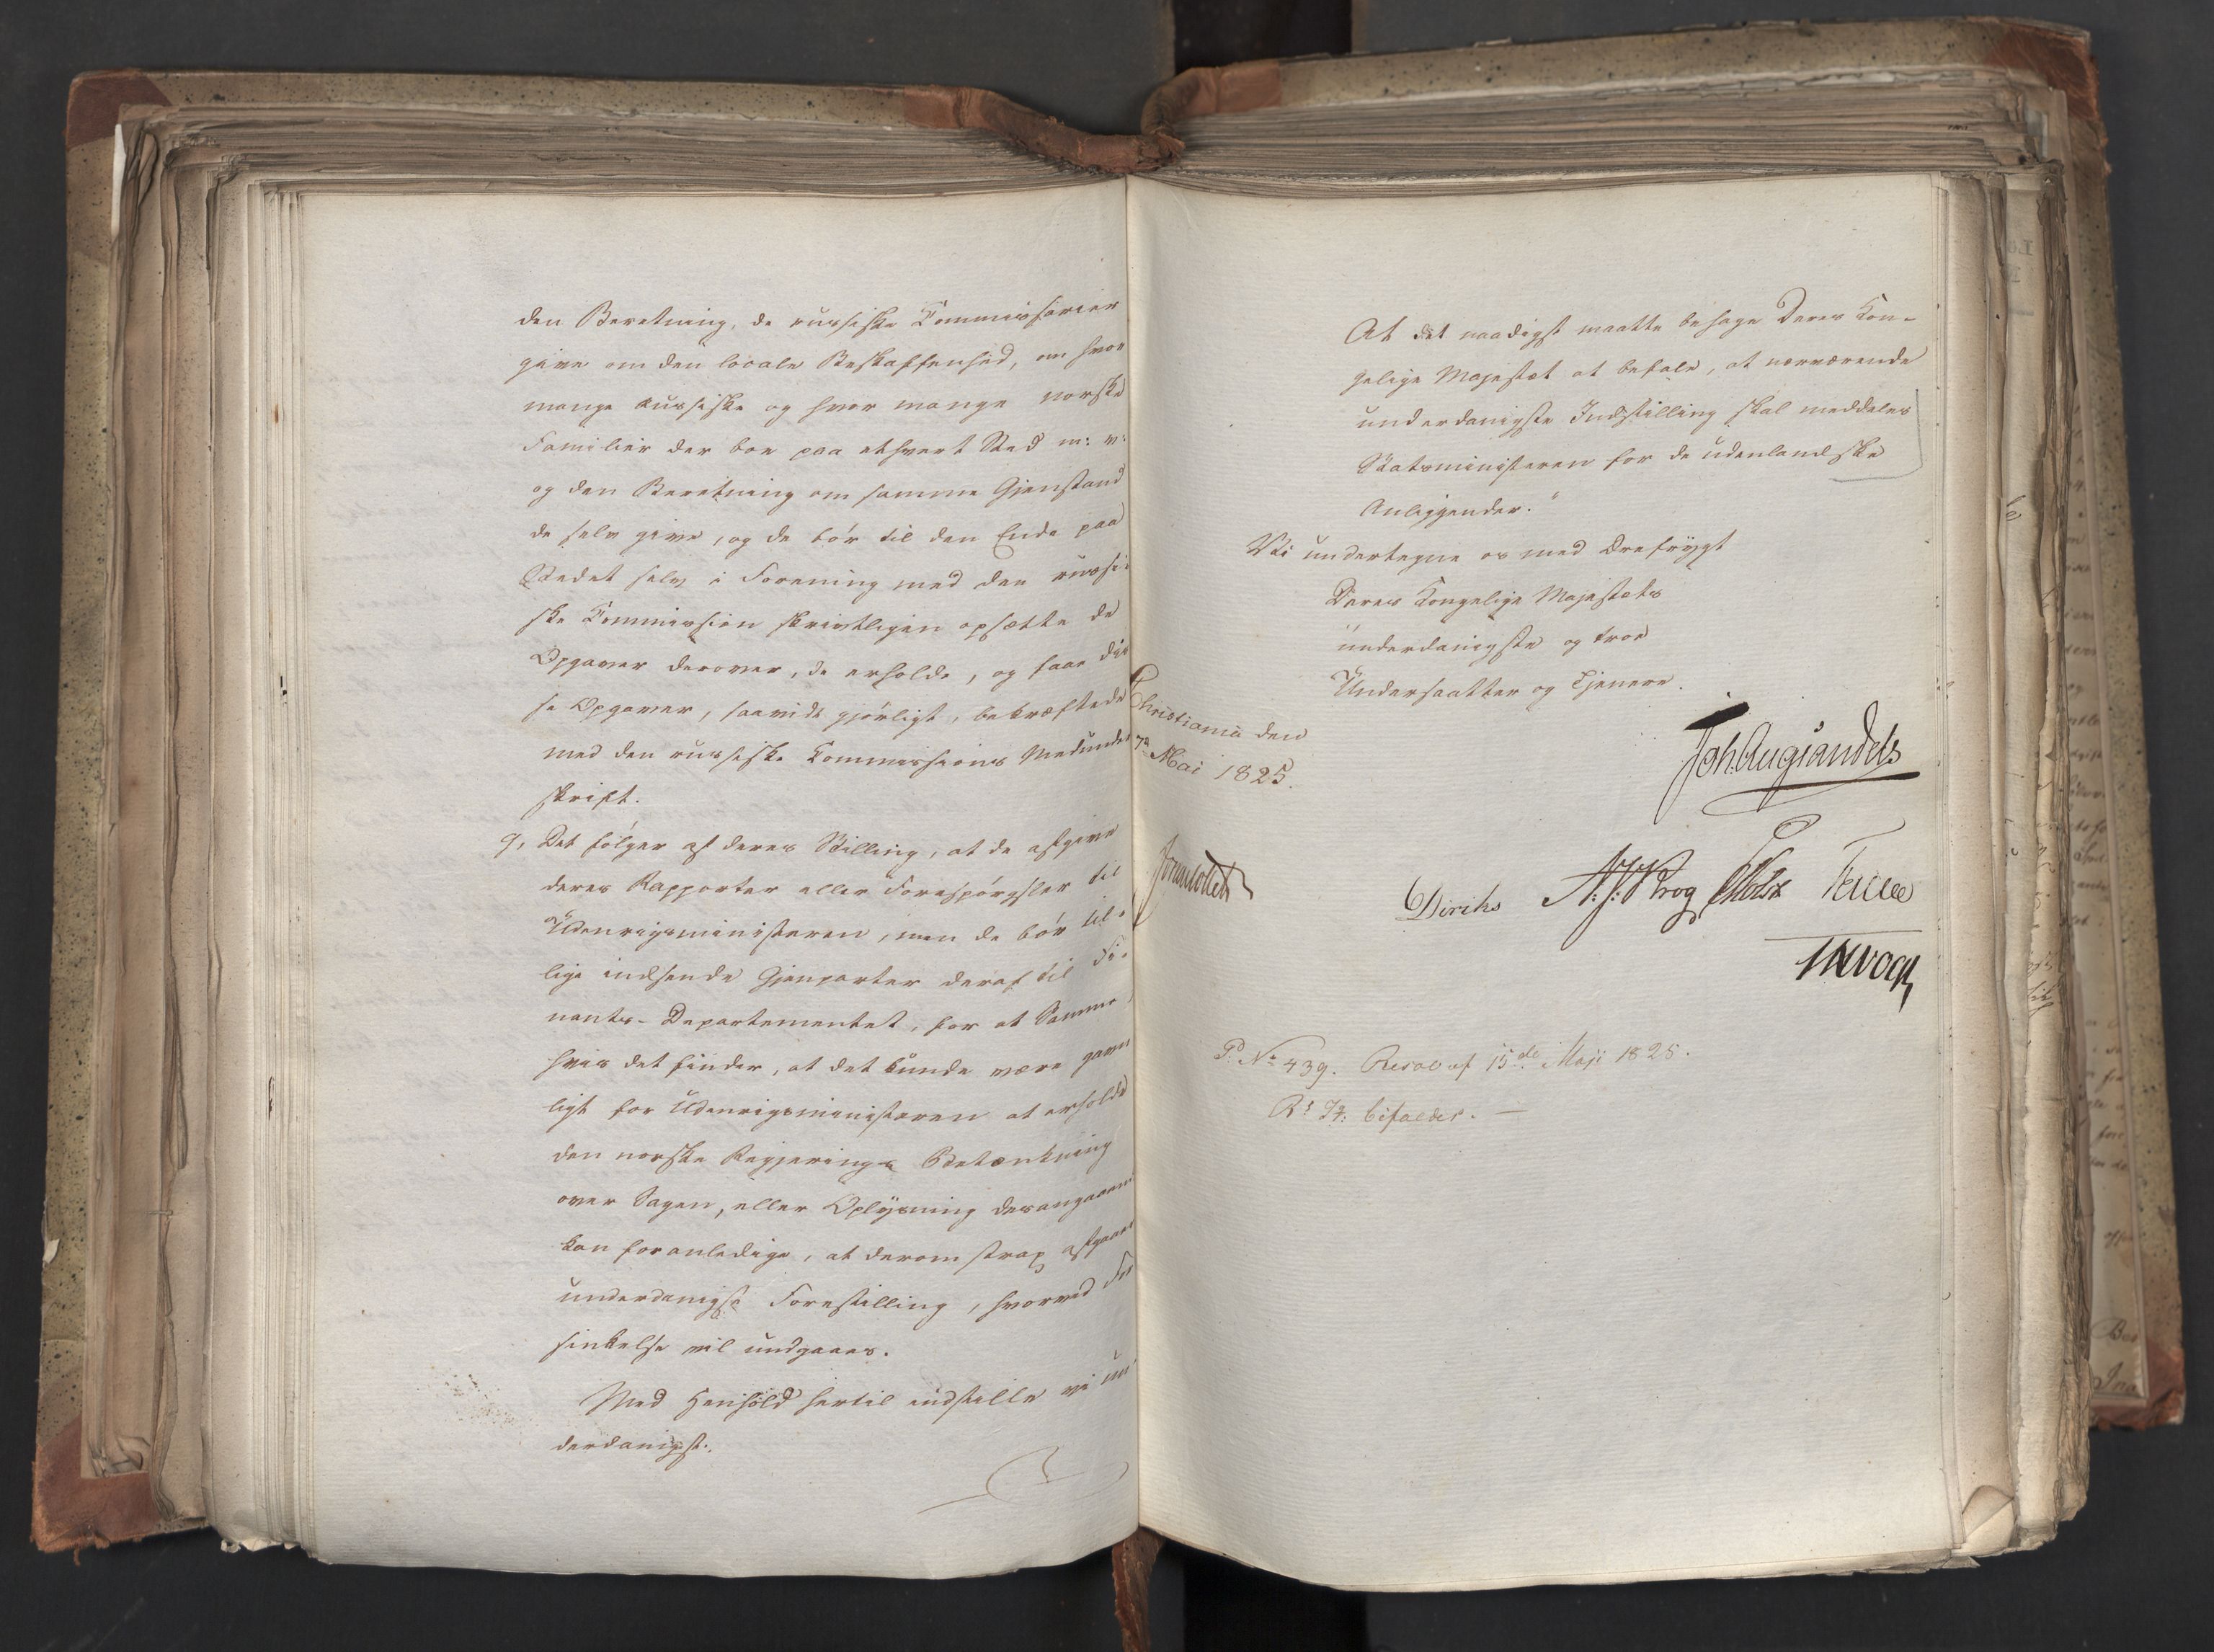 den Beretning, de russiske Commissarier
give om den locale Beskaffenhed, om hvor
mange russiske og hvor mange norske
Familier der boe paa ethvert Sted m: v:
og den Beretning om samme Gjenstand
de selv give, og de bör til den Ende paa
Stedet selv i Forening med den russi-
ske Commission skriftligen opsætte de
Opgaver derover, de erholde, og faae dis
se Opgaver, saavidt gjörligt, bekræftede
med den russiske Commissions Medunder
skrift.
9, Det fölger af deres Stilling, at de afgive
deres Rapporter eller Forespörgsler til
Udenrigsministeren, men de bör til-
lige indsende Gjenparter deraf til Fi-
nants-Departementet, for at Samme,
hvis det finder, at det kunde være gavn
ligt for Udenrigsministeren at erholde
den norske Regjerings Betænkning
over Sagen, eller Oplysning desangaaende
kan foranledige, at derom strax afgaaer
underdanigst Forestilling, hvorved For
sinkelse vil undgaaes.
Med Henhold hertil indstille vi un
derdanigst:
At det naadigst maatte behage Deres Kon-
gelige Majestæt at befale, at nærværende
underdanigste Indstilling skal meddeles
Statsministeren for de udenlandske
Anliggender."
Vi undertegne os med Ærefrygt
Deres Kongelige Majestæts
underdanigste og troe
Undersaatter og Tjenere.
Christiania den
7de Mai 1825.
Joh. Aug: Sandels
Jonas Collett
Diriks A. J. Krog Holst Treschow
J H Vogt
P: No 439. Resol af 15de Maji 1825.
Rs I: bifaldes. —